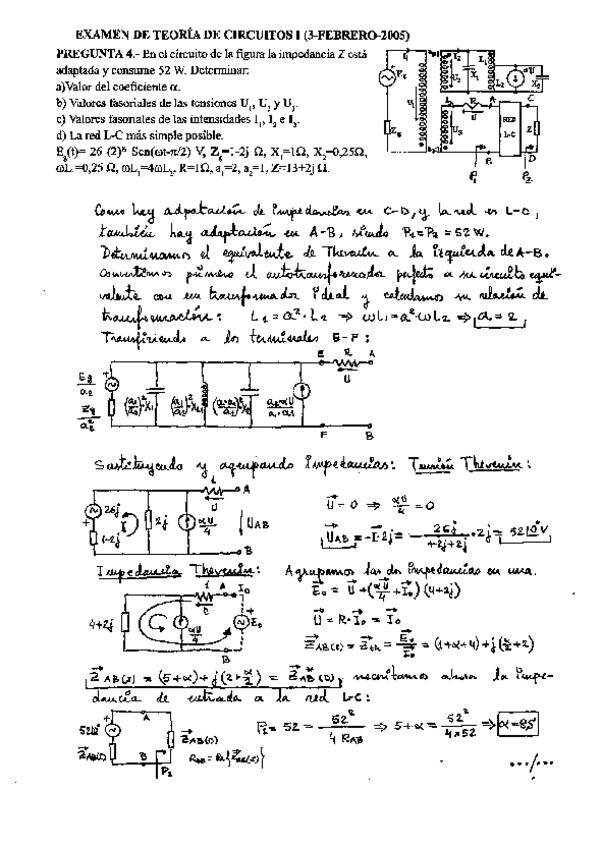 EXAMEN DE TEORÍA DE CIRCUITOS I (3-FEBRERO-2005)
PREGUNTA 4.- En el circuito de la figura la impedancia Z está
adaptada y consume 52 W. Determinar:
a)Valor del coeficiente α.
b) Valores fasoriales de las tensiones U₁, U₂ y U₃.
c) Valores fasoriales de las intensidades I₁, I₂ e I₃.
d) La red L-C más simple posible.
X₁=1Ω, X₂=0,25Ω,
R=1Ω, a₁=2, a₂=1, Z=13+2j Ω.
Como hay adpatación de impedancias en C-D, y la red es L-C,
también hay adaptación en A-B, siendo P₁=P₂ = 52 W.
Determinamos el equivalente de Thevenin a la izquierda de A-B.
Convertimos primero el autotransformador perfecto a su circuito equi-
valente con un transformador ideal y calculamos su relación de
transformación: L₁ = a²·L₂ ⇒ ωL₁ = a²·ωL₂ ⇒ a = 2
Transfiriendo a los terminales E-F:
E R A
U
F B
Sustituyendo y agrupando impedancias: Tensión Thevenin:
U = 0 ⇒ αU/4 = 0
26j 2j αU/4 U_AB
Impedancia Thevenin: Agrupamos las dos impedancias en una.
E₀ = U + (αU/4 + I₀)(4+2j)
4+2j αU/4 E₀
U = R·I₀ = I₀
Z_AB(I) = Z_th = E₀/I₀ = (1+α+4)+j(α/2+2)
Z_AB(I) = (5+α)+j(2+α/2) = Z*_AB(D), necesitamos ahora la impe-
dancia de entrada a la red L-C:
P₁ = 52 = 52²/4 R_AB ⇒ 5+α = 52²/4×52 ⇒ α=8
Z_AB(D)
B P₁ R_AB = Re{Z_AB(I)}
.../...